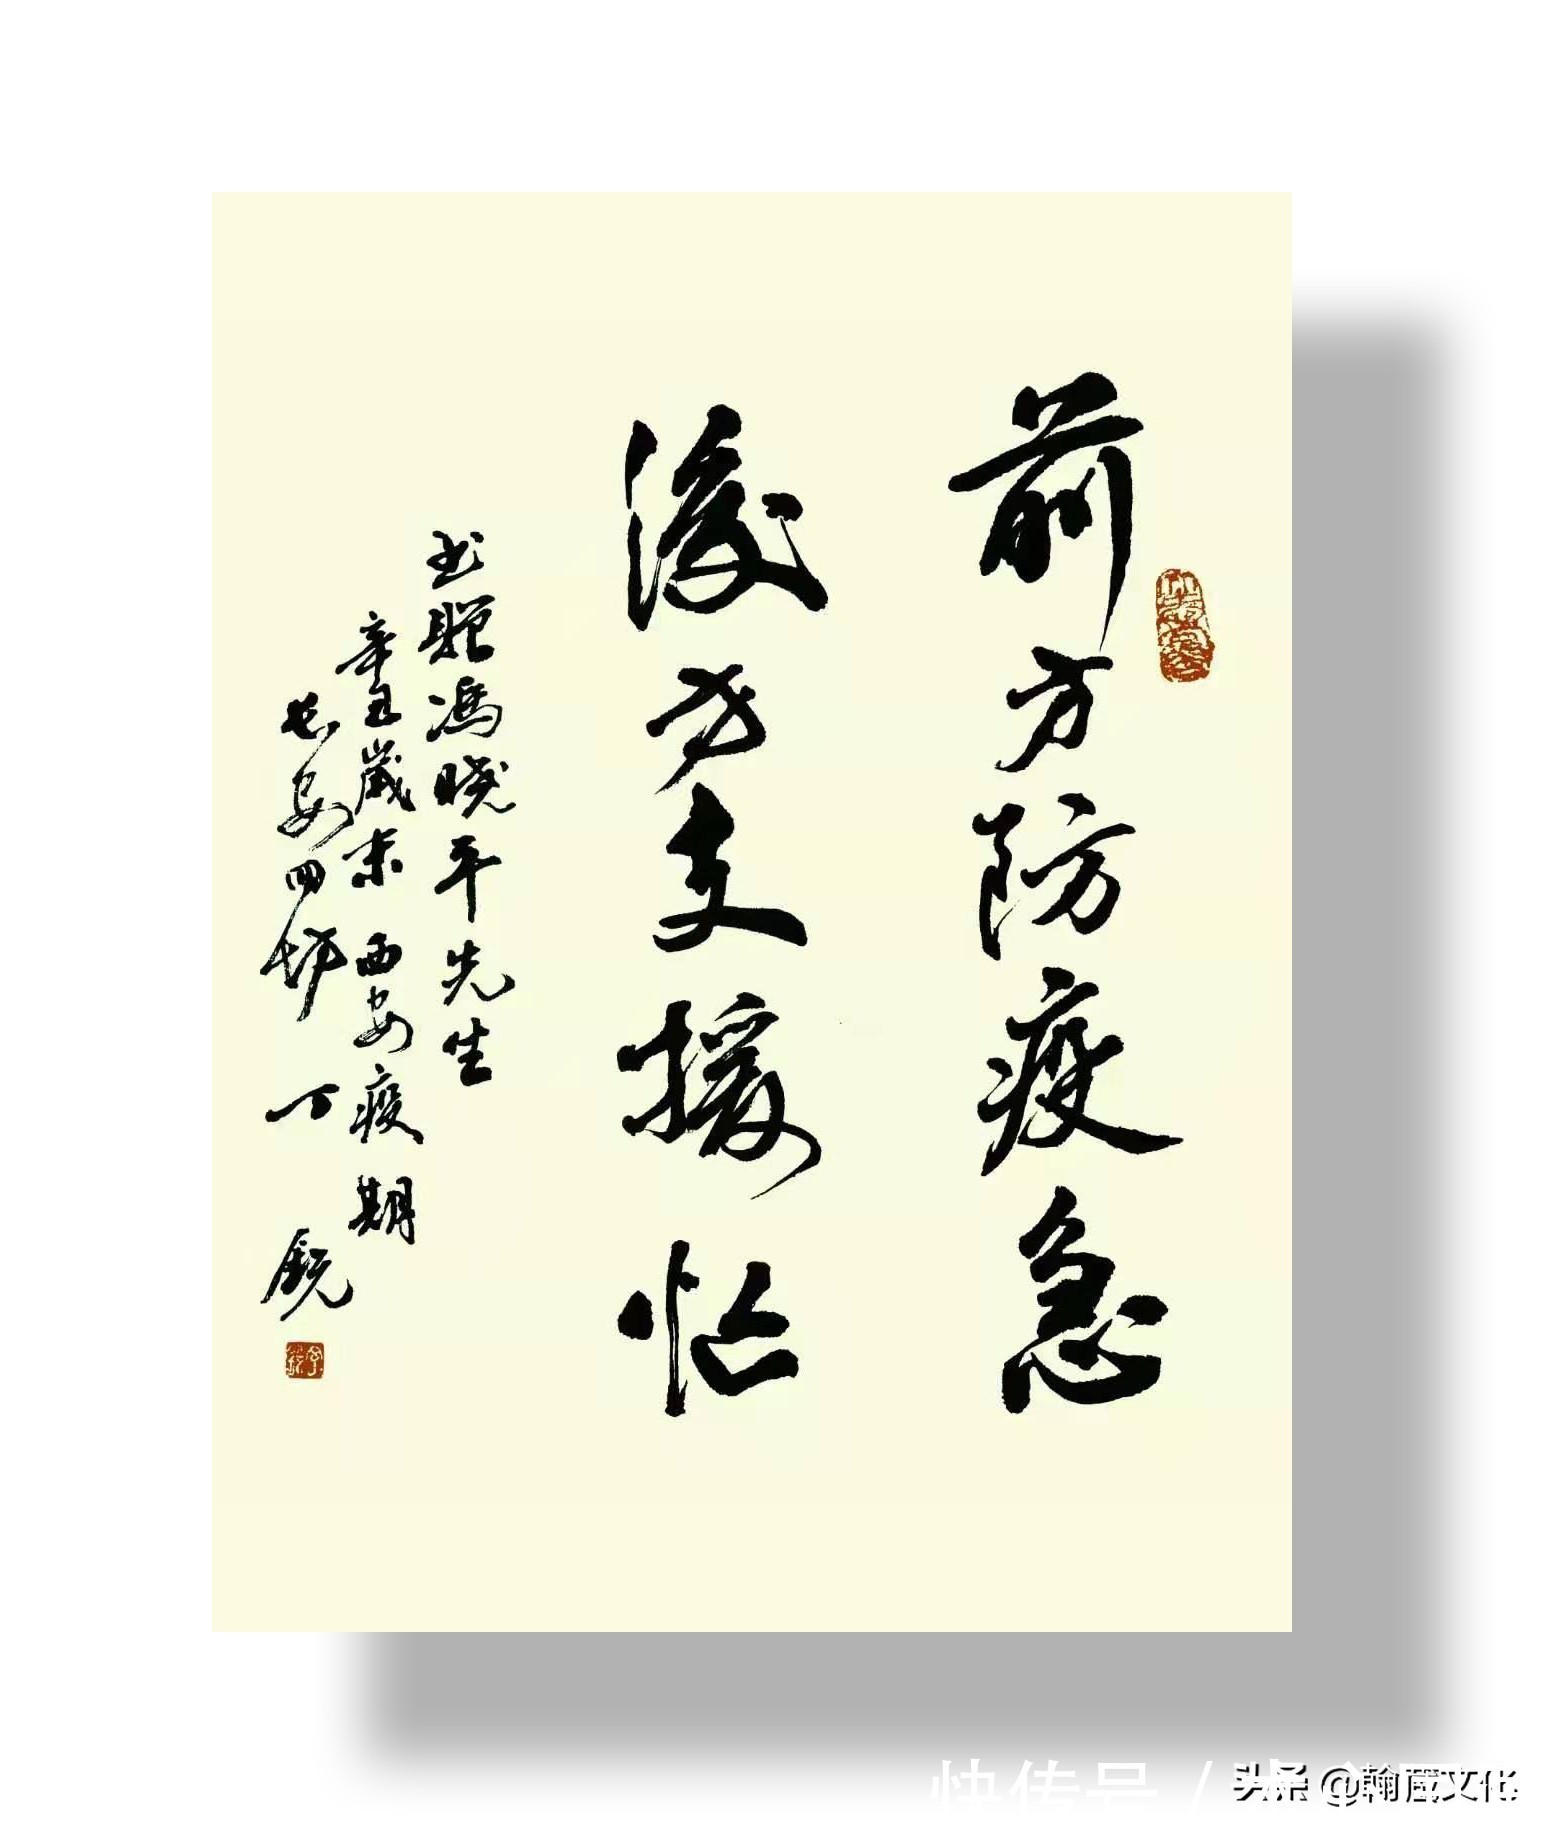 前方防疫急
後方支援忙
书赠馮晓平先生
辛丑歲末西安疫期
长安四坊
头条@翰
文化
快传号/